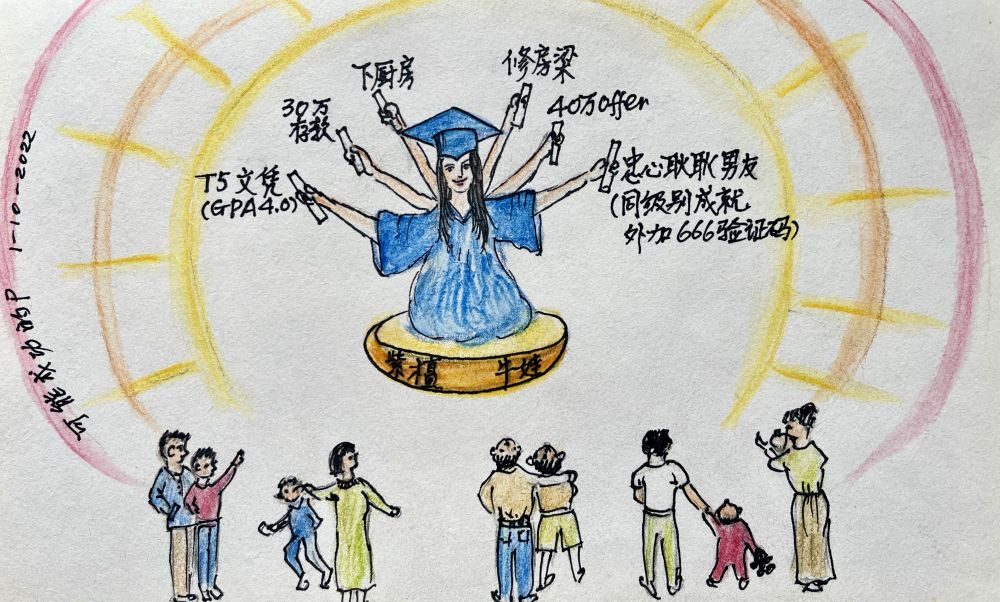 下厨房
修房梁
30万
存款
40万offer
T5文凭
(GPA4.0)
忠心耿耿男友
(同级别成就
外加666验证码)
紫檀 牛娃
可能成功的P 1-10-2022